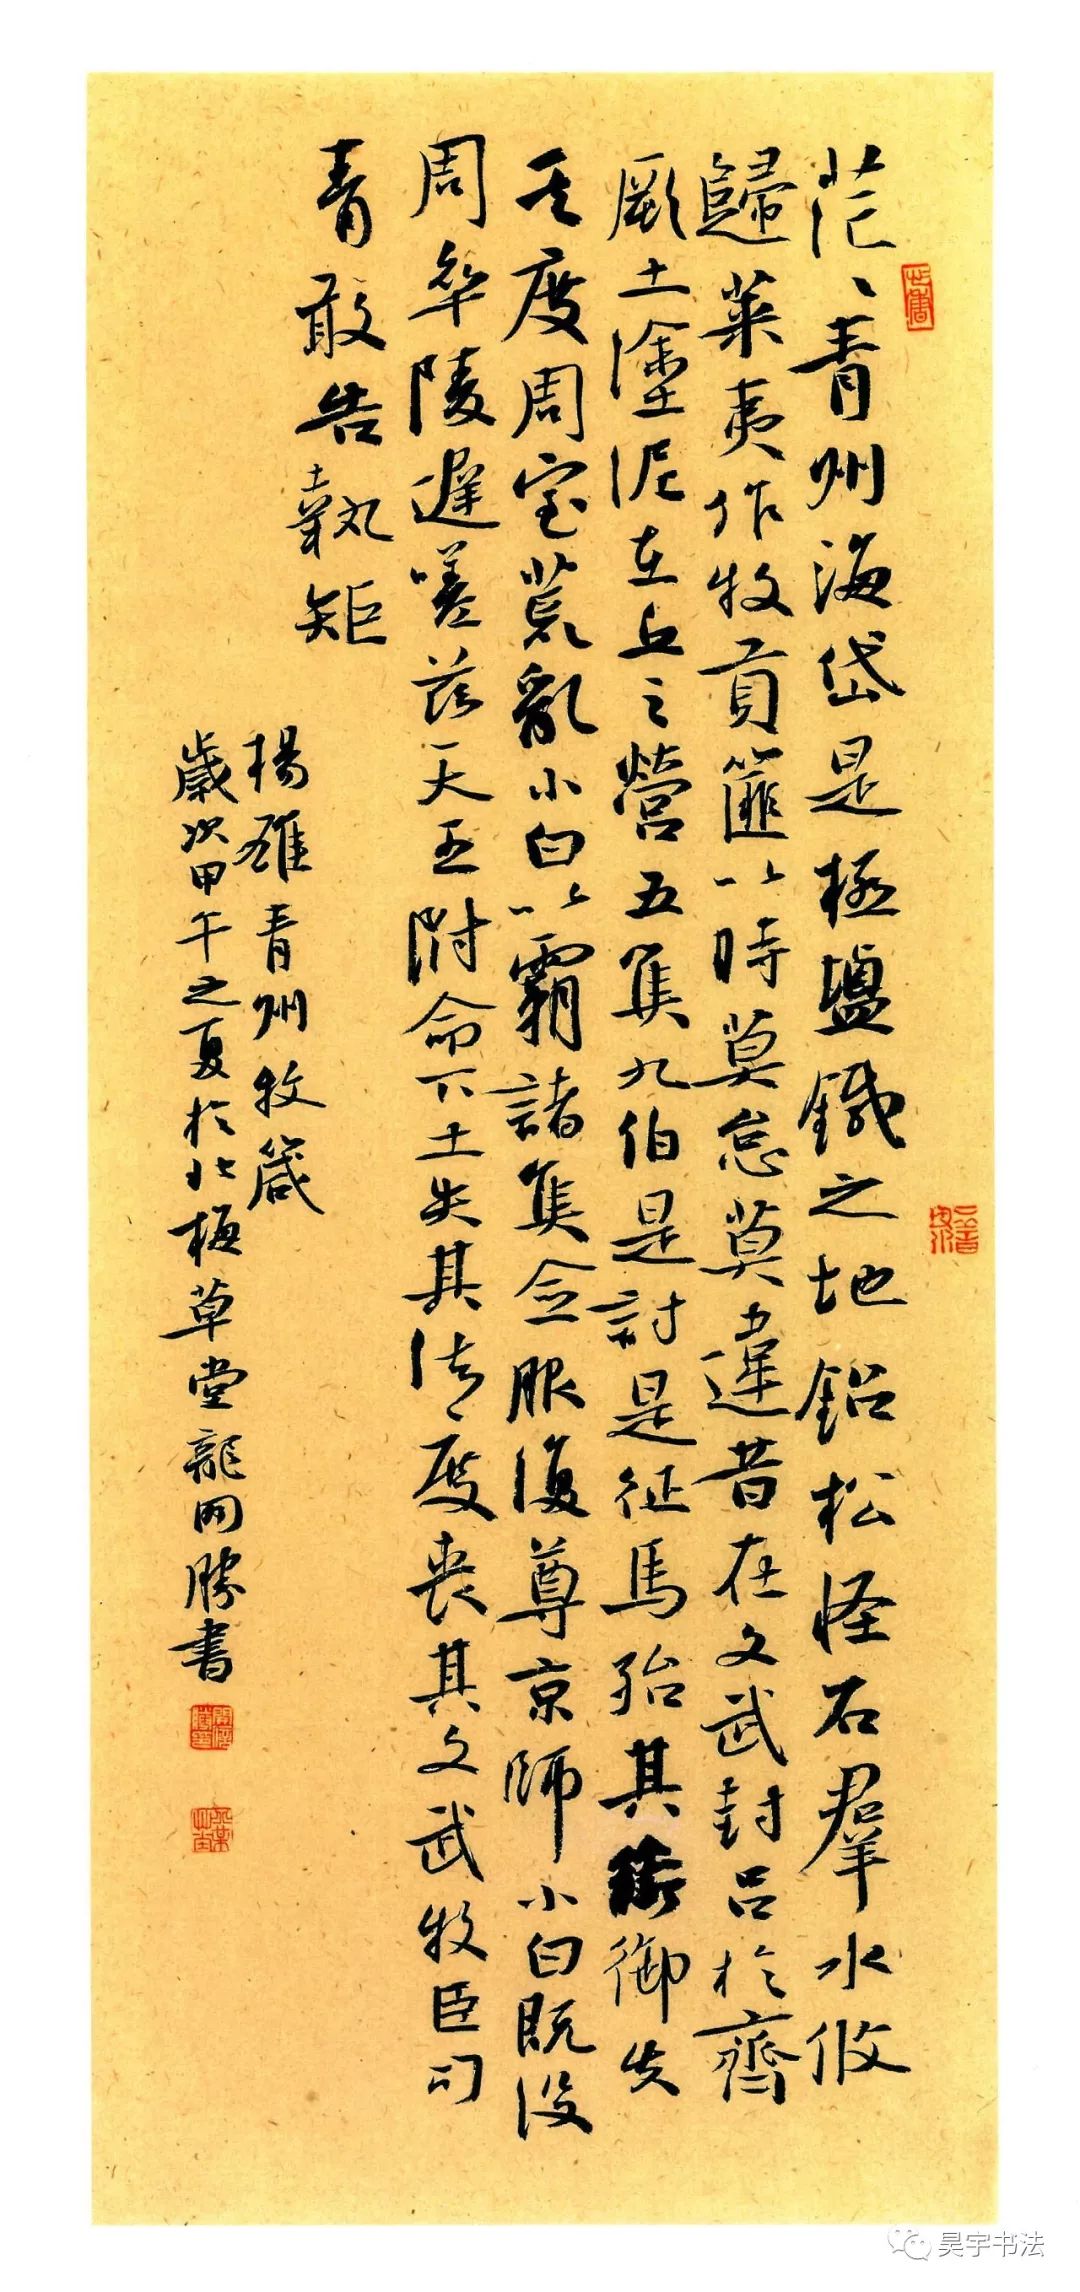 茫〻青州海岱是極鹽鐵之地鉛松怪石羣水攸
歸萊夷作牧貢篚以時莫怠莫違昔在文武封呂於齊
厥土塗泥在丘之營五隻九伯是討是征馬殆其銜御失
其度周室荒亂小白以霸諸隻僉服復尊京師小白既没
周卒陵遲嗟茲天王附命下土失其法〻度喪其文武牧臣司
青敢告執矩
楊雄青州牧箴
歲次甲午之夏於北梅草堂龍開勝書
昊宇书法